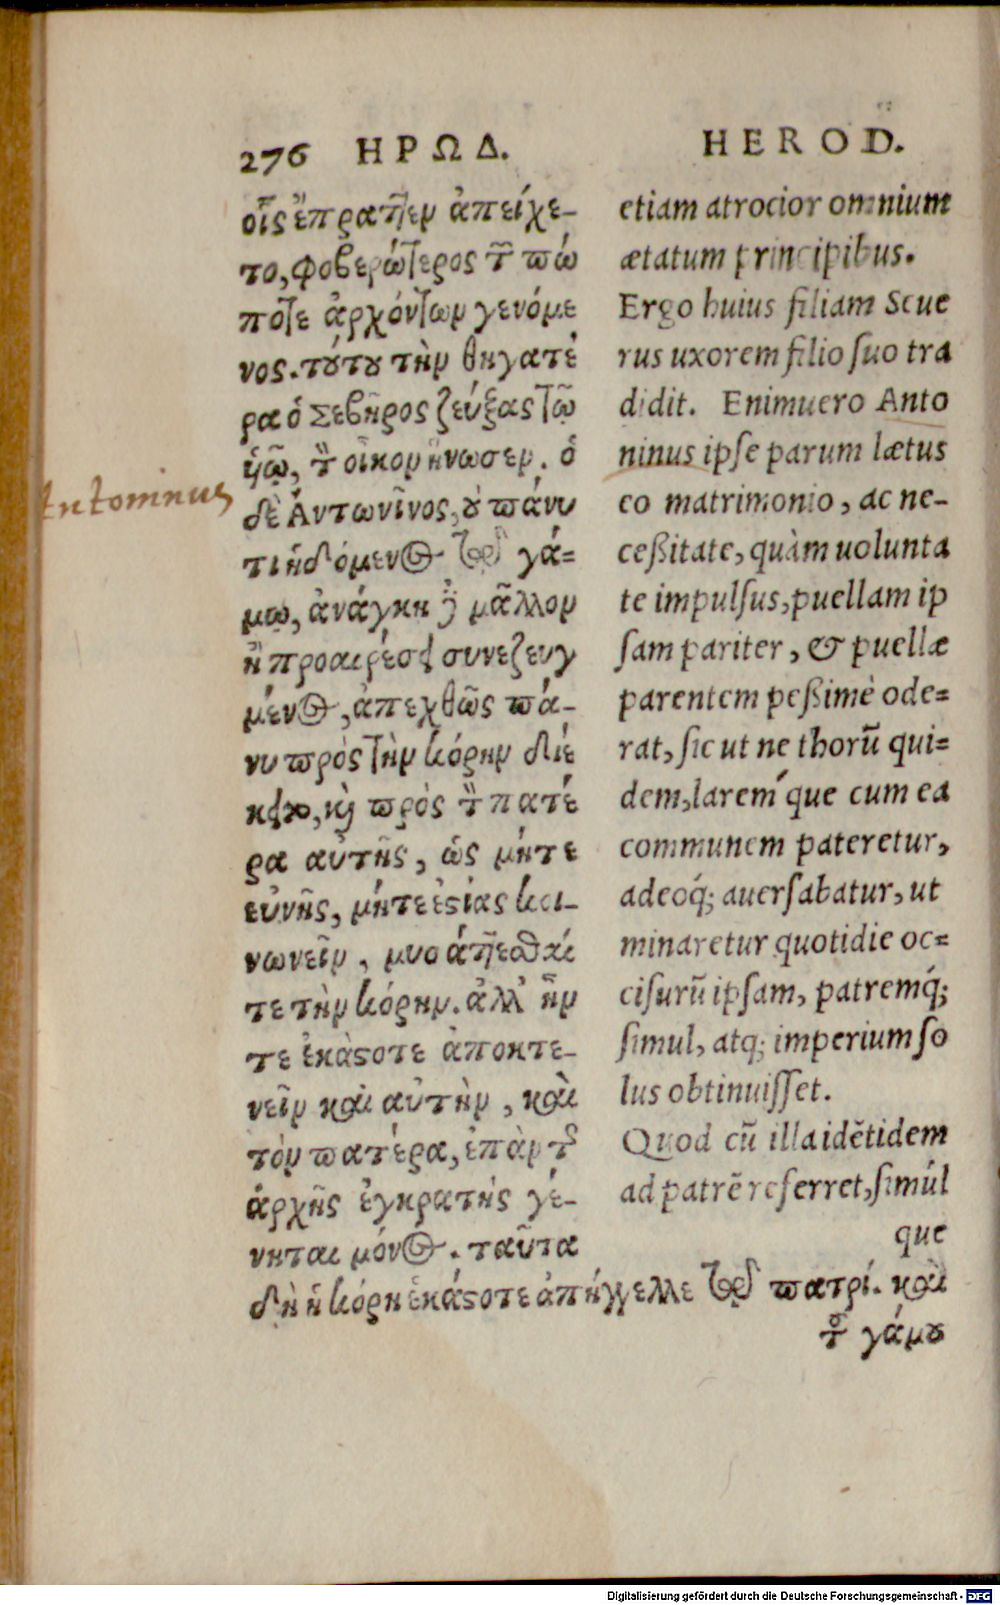 276 ΗΡΩΔ.
οἷς ἔπραττεν ἀπείχε-
το, φοβερώτερος τῶν πώ
ποτε ἀρχόντων γενόμε
νος. τούτου τὴν θηγατέ
ρα ὁ Σεβῆρος ζεύξας τῷ
ὑῷ, τὸν οἶκον ἥνωσεν. ὁ
δὲ Ἀντωνῖνος, οὐ πάνυ
τι ἡδόμενος τῷ γά=
μῳ, ἀνάγκῃ δὲ μᾶλλον
ἢ προαιρέσει συνεζευγ
μένος, ἀπεχθῶς πά-
νυ πρὸς τὴν κόρην διέ
κειτο, καὶ πρὸς τὸν πατέ
ρα αὐτῆς, ὡς μήτε
εὐνῆς, μήτε ἑστίας κοι-
νωνεῖν, μυσάττεσθαί
τε τὴν κόρην. ἀλλ' ἦν
τε ἑκάστοτε ἀποκτε-
νεῖν καὶ αὐτὴν, καὶ
τὸν πατέρα, ἐπὰν τῆς
ἀρχῆς ἐγκρατὴς γέ-
νηται μόνος. ταῦτα
δὴ ἡ κόρη ἑκάστοτε ἀπήγγελλε τῷ πατρί. καὶ
τοῦ γάμου
Antoninus
HEROD.
etiam atrocior omnium
ætatum principibus.
Ergo huius filiam Seue
rus uxorem filio suo tra
didit. Enimuero Anto
ninus ipse parum lætus
eo matrimonio, ac ne-
ceßitate, quàm uolunta
te impulsus, puellam ip
sam pariter, & puellæ
parentem peßimè ode=
rat, sic ut ne thorū qui=
dem, larem´que cum ea
communem pateretur,
adeoq́; auersabatur, ut
minaretur quotidie oc=
cisurū ipsam, patremq́;
simul, atq; imperium so
lus obtinuisset.
Quod cū illa idētidem
ad patrē referret, simúl
que
Digitalisierung gefördert durch die Deutsche Forschungsgemeinschaft - DFG